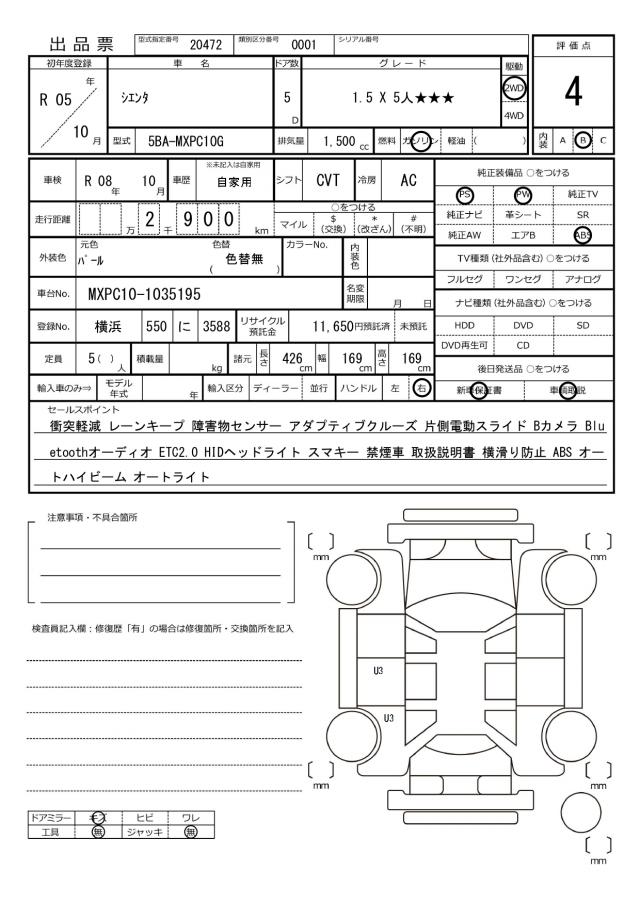 出品票 型式指定番号 20472 類別区分番号 0001 シリアル番号
評価点
初年度登録 車名 ドア数 グレード 駆動
R 05 年 10 月 シエンタ 5 D 1.5 X 5人★★★ 2WD 4WD 4
型式 5BA-MXPC10G 排気量 1,500 cc 燃料 ガソリン 軽油 ( ) 内装 A B C
車検 R 08 年 10 月 車歴 ※未記入は自家用 自家用 シフト CVT 冷房 AC
純正装備品 ○をつける
PS PW 純正TV
純正ナビ 革シート SR
純正AW エアB ABS
走行距離 万 2 千 9 0 0 km
○をつける
マイル $ (交換) * (改ざん) # (不明)
外装色 元色 パール 色替 ( 色替無 ) カラーNo. 内装色
TV種類 (社外品含む) ○をつける
フルセグ ワンセグ アナログ
車台No. MXPC10-1035195 名変期限 月 日
ナビ種類 (社外品含む) ○をつける
HDD DVD SD
DVD再生可 CD
登録No. 横浜 550 に 3588 リサイクル預託金 11,650円預託済 未預託
定員 5 ( ) 人 積載量 kg 諸元 長さ 426 cm 幅 169 cm 高さ 169 cm
後日発送品 ○をつける
新車保証書 車輌取説
輸入車のみ⇒ モデル年式 年 輸入区分 ディーラー 並行 ハンドル 左 右
セールスポイント
衝突軽減 レーンキープ 障害物センサー アダプティブクルーズ 片側電動スライド Bカメラ Blu
etoothオーディオ ETC2.0 HIDヘッドライト スマキー 禁煙車 取扱説明書 横滑り防止 ABS オー
トハイビーム オートライト
注意事項・不具合箇所
〔 〕 mm
〔 〕 mm
検査員記入欄：修復歴「有」の場合は修復箇所・交換箇所を記入
U3
U3
〔 〕 mm
〔 〕 mm
ドアミラー キズ ヒビ ワレ
工具 無 ジャッキ 無
〔 〕 mm